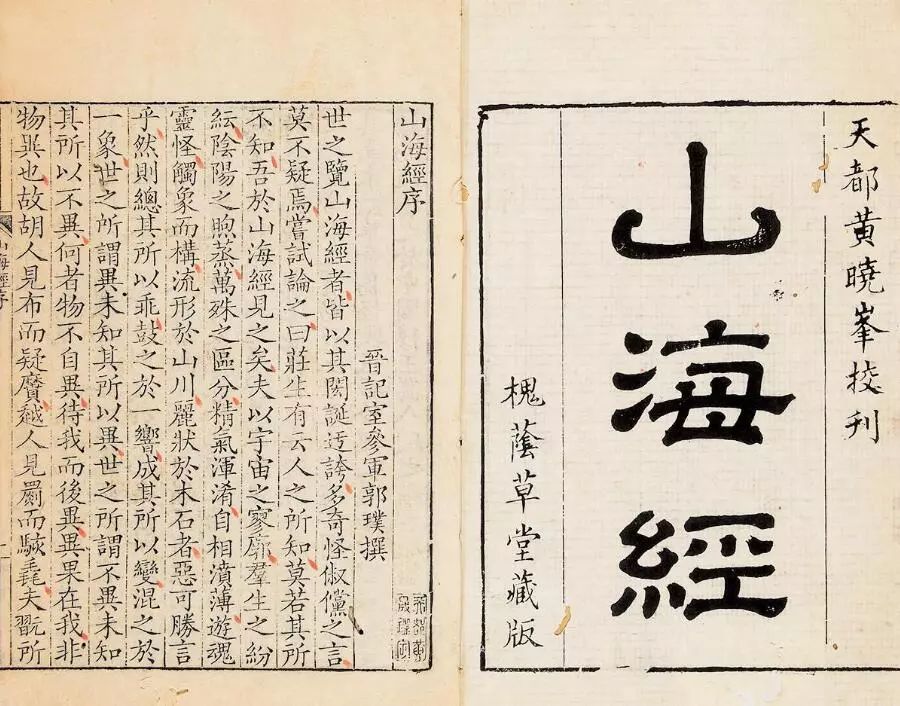 天都黄曉峯挍刊
山海經
槐蔭草堂藏版
山海經序
晉記室參軍郭璞撰
世之覽山海經者皆以其閎誕迃誇多奇怪俶儻之言
莫不疑焉嘗試論之曰莊生有云人之所知莫若其所
不知吾於山海經見之矣夫以宇宙之寥廓羣生之紛
紜陰陽之煦蒸萬殊之區分精氣渾淆自相濆薄遊魂
靈怪觸象而構流形於山川麗狀於木石者惡可勝言
乎然則總其所以乖鼓之於一響成其所以變混之於
一象世之所謂異未知其所以異世之所謂不異未知
其所以不異何者物不自異待我而後異異果在我非
物異也故胡人見布而疑黂越人見罽而駭毳夫翫所
山海經序